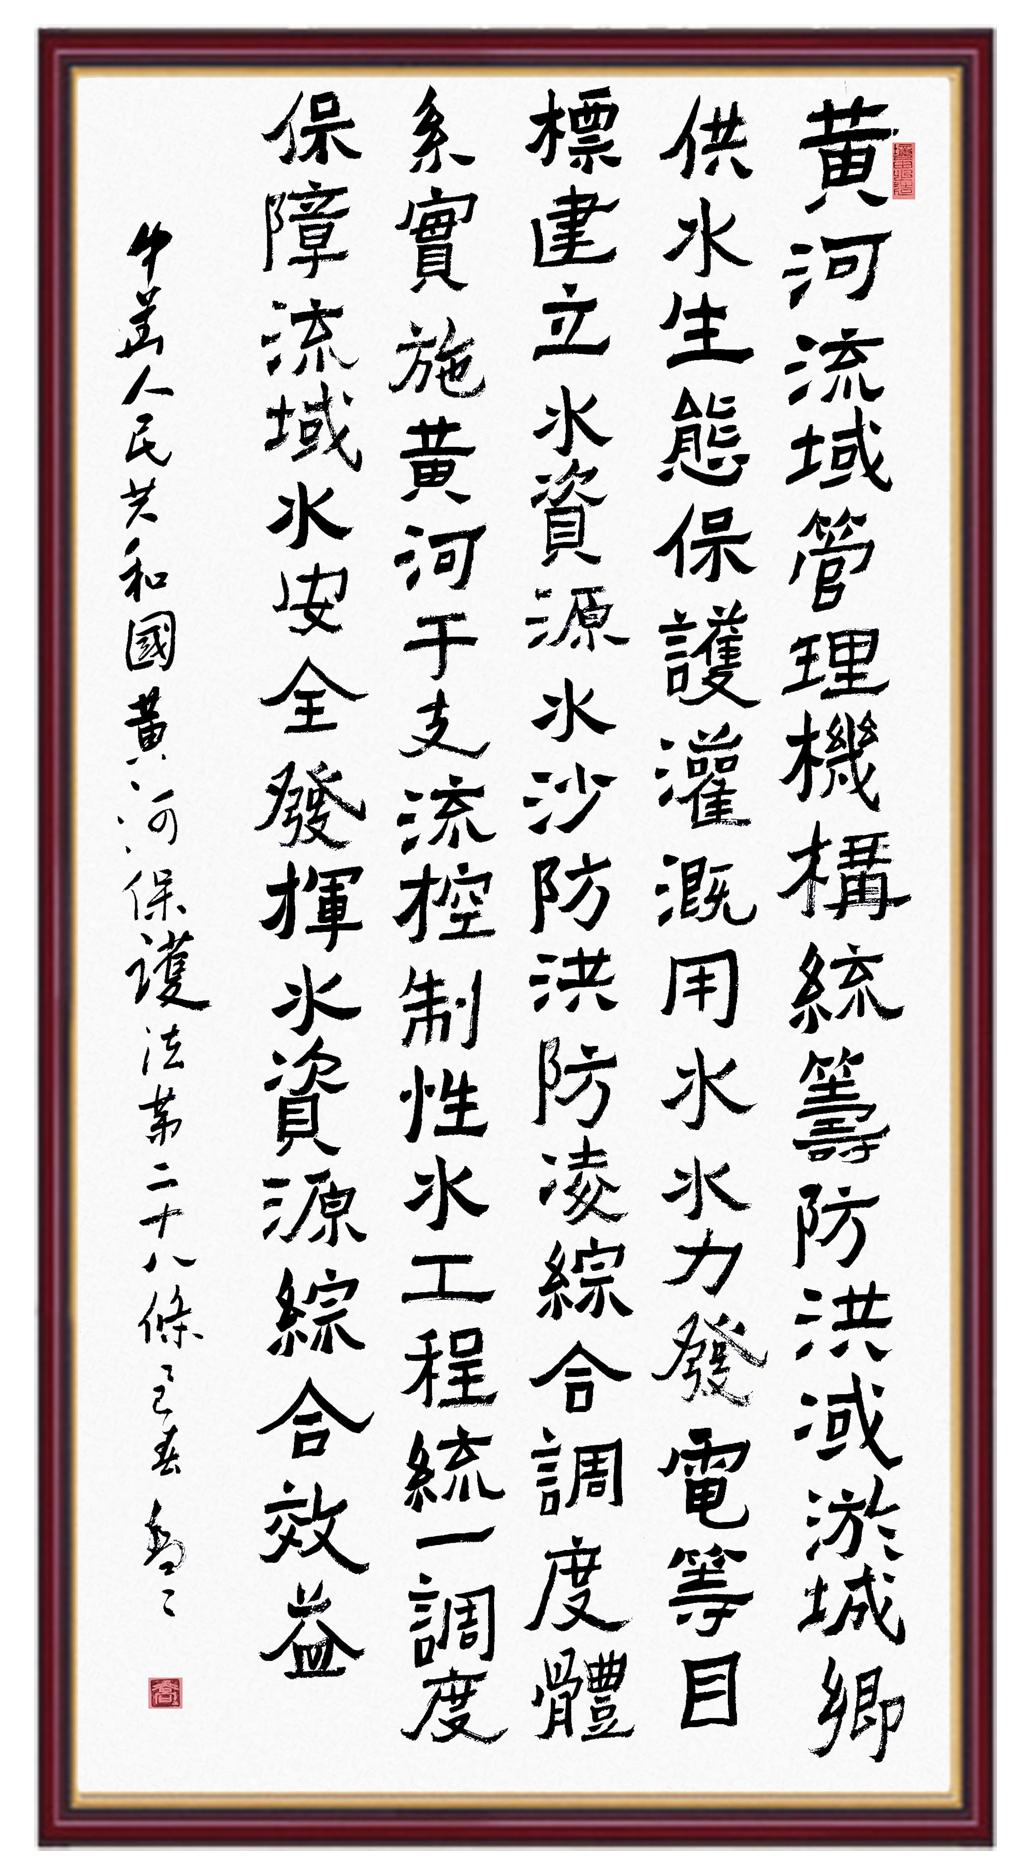 黃河流域管理機構統籌防洪減淤城鄉
供水生態保護灌溉用水水力發電等目
標建立水資源水沙防洪防凌綜合調度體
系實施黃河干支流控制性水工程統一調度
保障流域水安全發揮水資源綜合效益
中華人民共和國黃河保護法第二十八條乙巳春